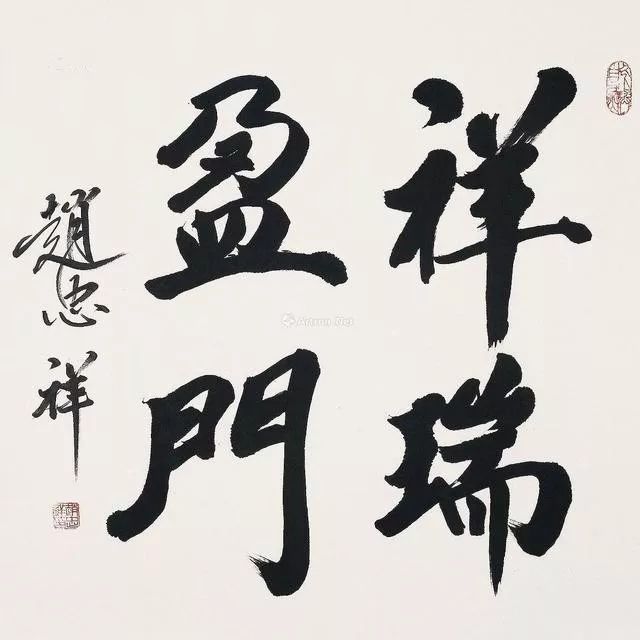 祥瑞
盈門
趙忠祥
Artron.Net